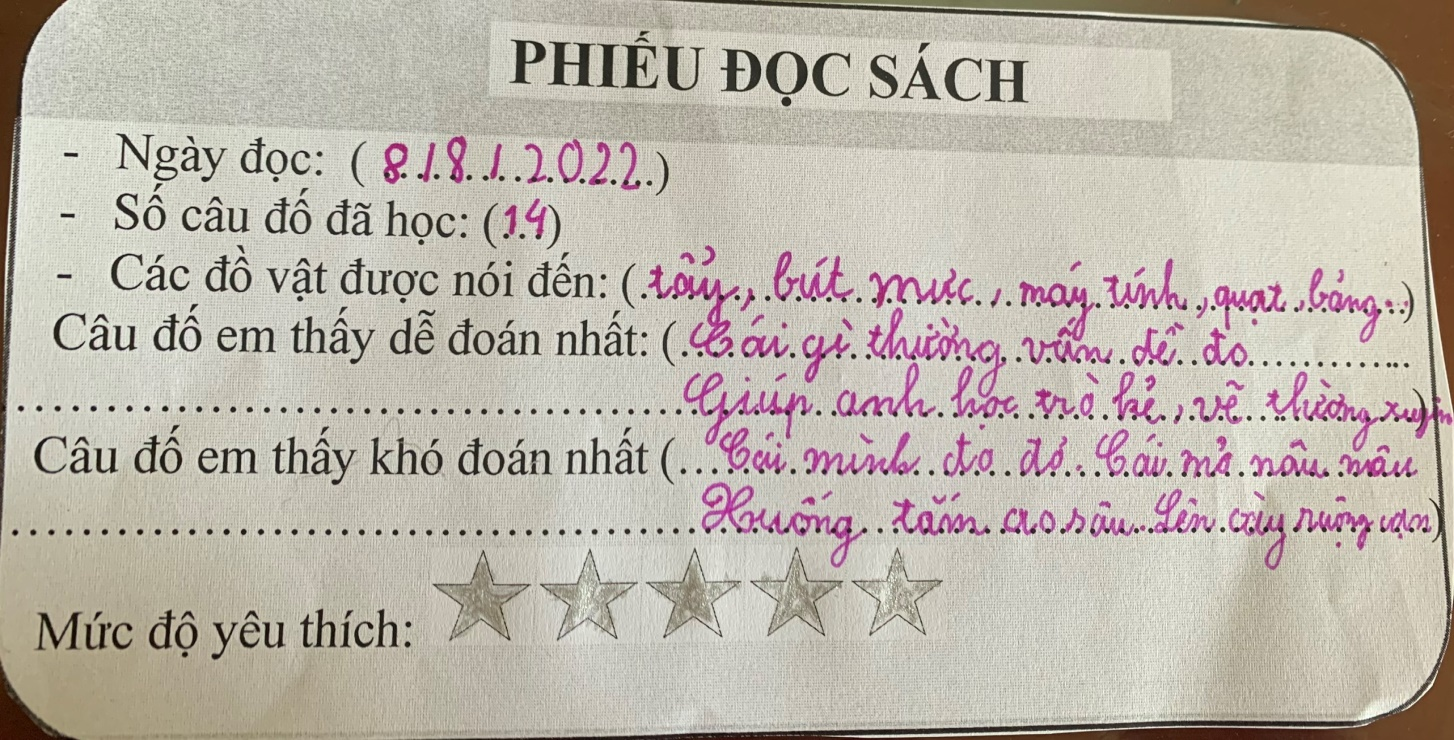 PHIẾU ĐỌC SÁCH
- Ngày đọc: (8/8/.2022.)
- Số câu đố đã học: (14)
- Các đồ vật được nói đến: (.tẩy., bút mực., máy tính, quạt, bảng..)
Câu đố em thấy dễ đoán nhất: (..Cái gì thường vẫn để đo............
....................................Giúp anh học trò kẻ, vẽ thường xuyên)
Câu đố em thấy khó đoán nhất (...Cái mình đo đỏ. Cái mỏ nâu nâu
....................................Xuống tắm ao sâu. Lên cày ruộng cạn)
Mức độ yêu thích: